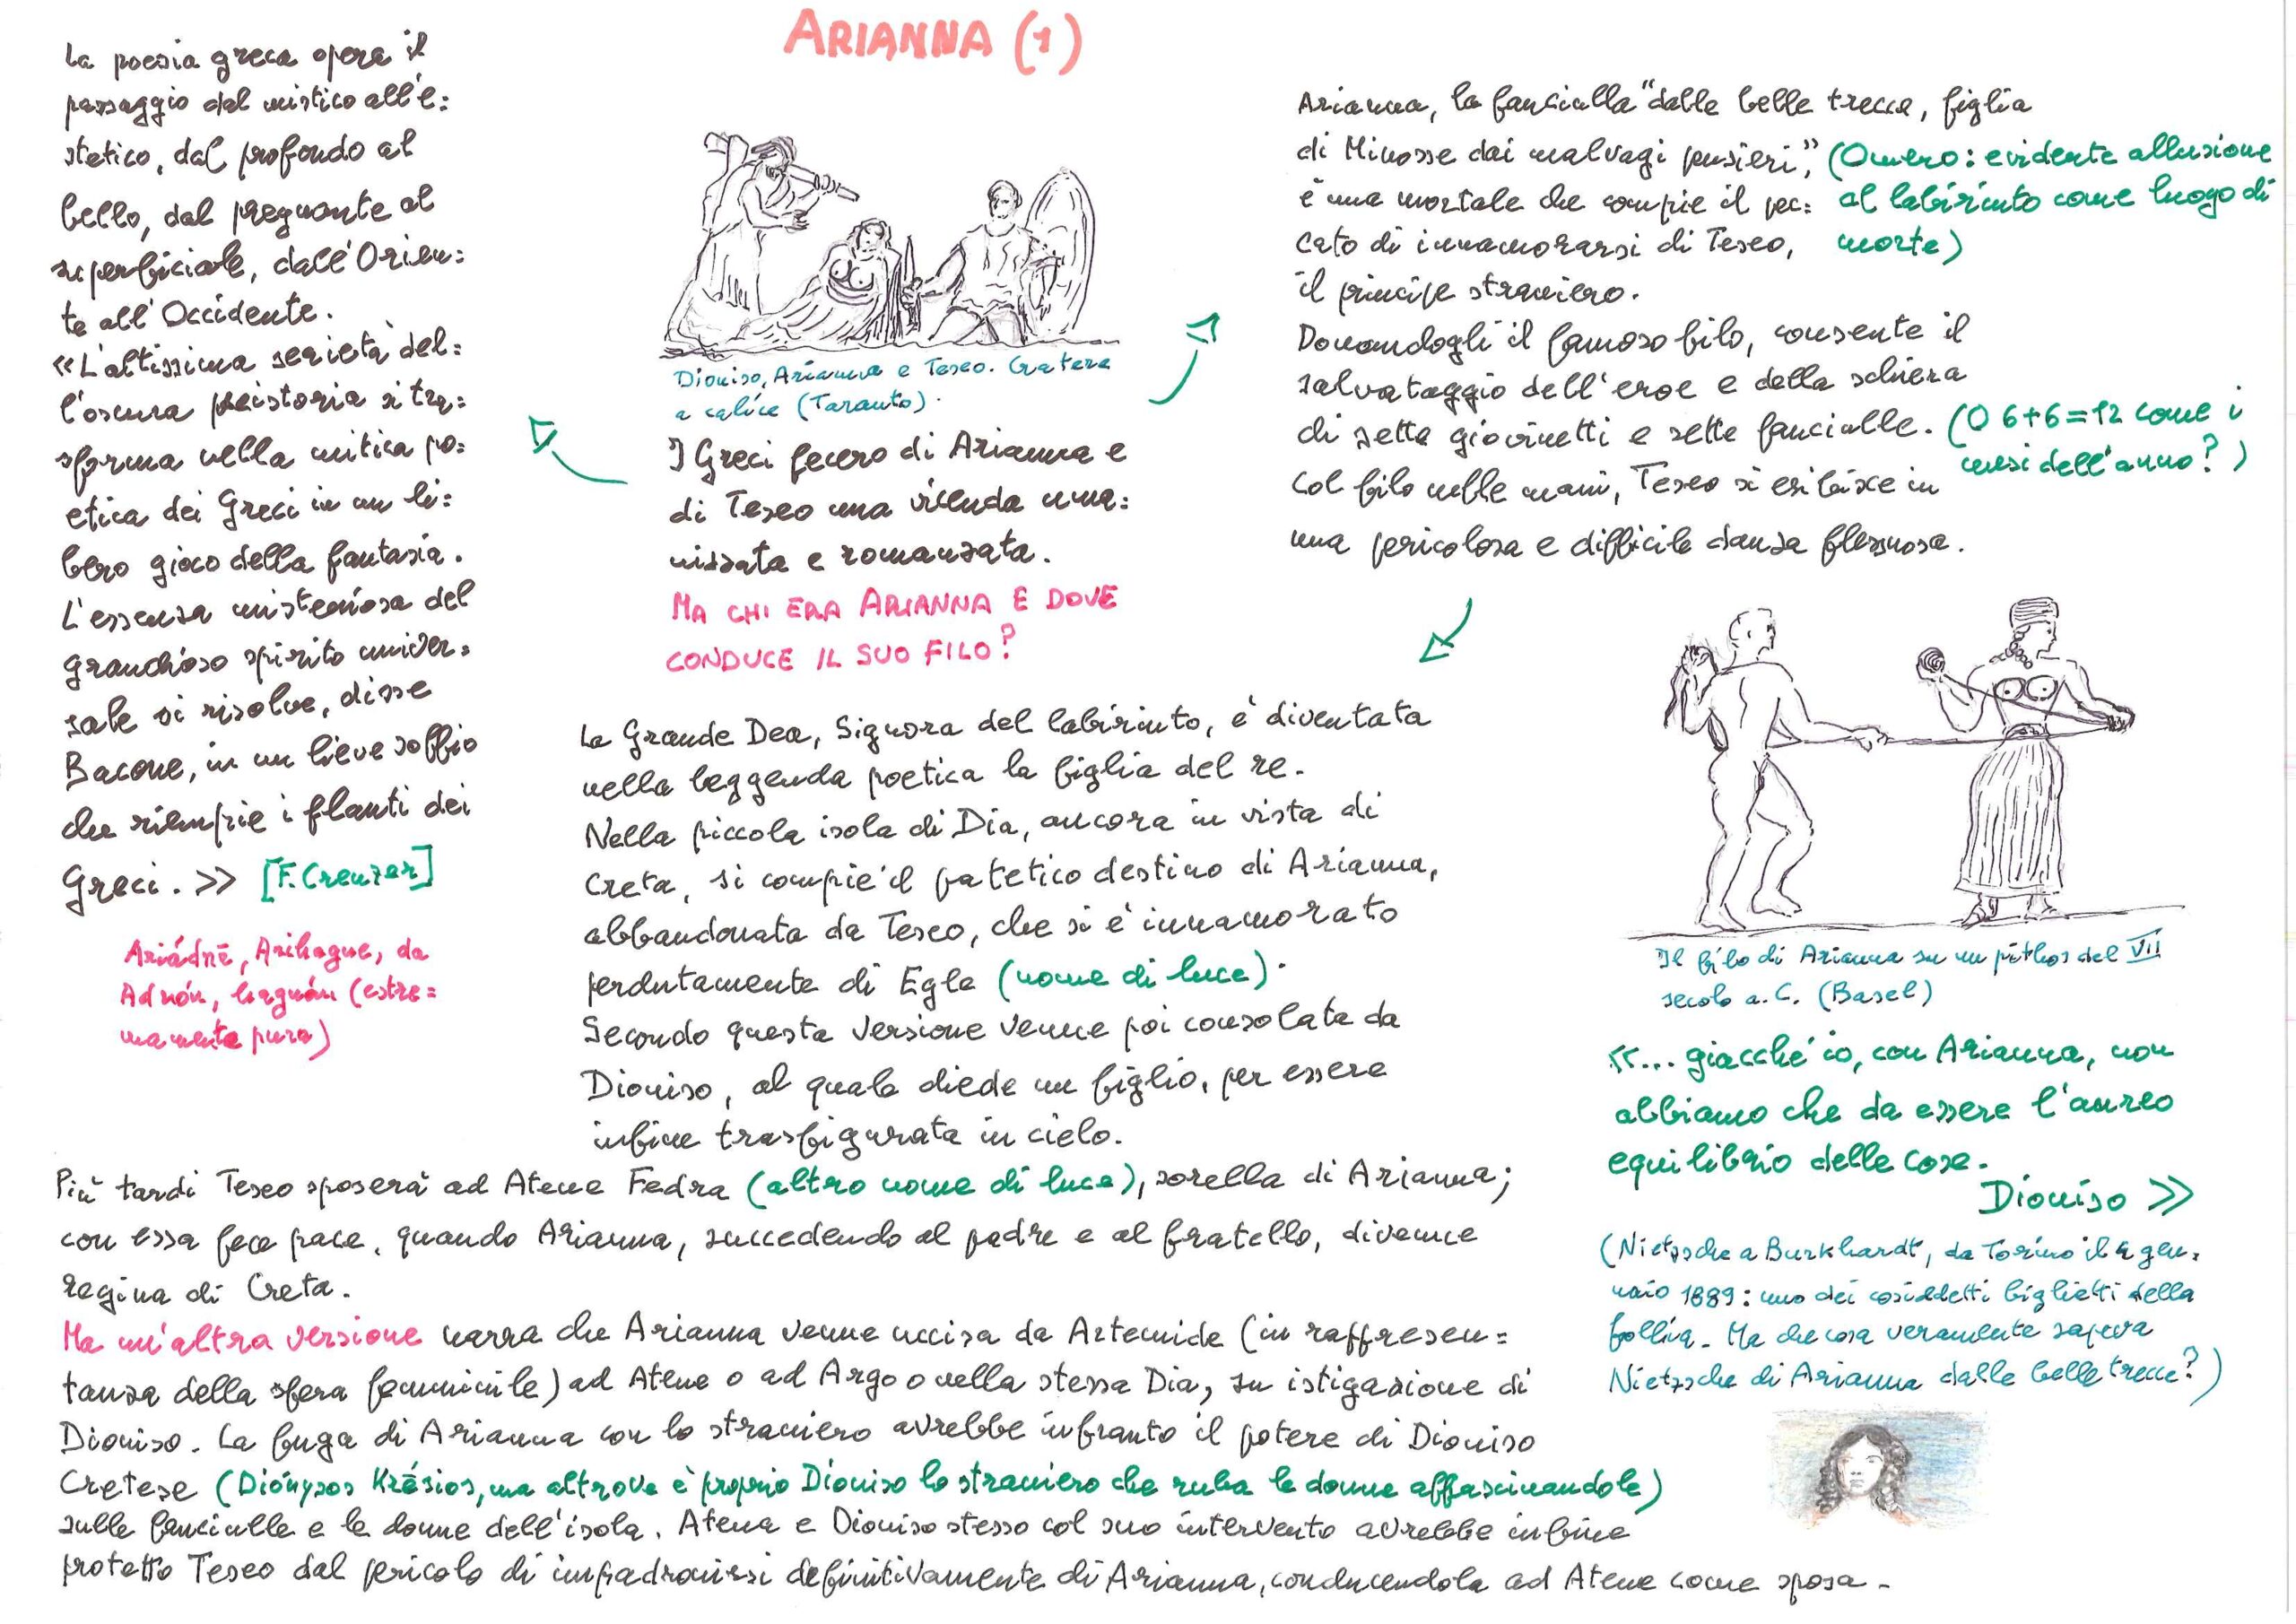 ARIANNA (1)
La poesia greca opera il
passaggio dal mistico all'e:
stetico, dal profondo al
bello, dal pregnante al
superficiale, dall'Orien:
te all'Occidente.
«L'altissima serietà del:
l'oscura preistoria si tra:
sforma nella mitica po:
etica dei Greci in un li:
bero gioco della fantasia.
L'essenza misteriosa del
grandioso spirito univer:
sale si risolve, disse
Bacone, in un lieve soffio
che riempie i flauti dei
Greci.» [F. Creuzer]
Ariádnē, Arihagne, da
Adnón, hagnón (estre:
mamente pura)
Dioniso, Arianna e Teseo. Cratere
a calice (Taranto).
I Greci fecero di Arianna e
di Teseo una vicenda uma:
nizzata e romanzata.
MA CHI ERA ARIANNA E DOVE
CONDUCE IL SUO FILO?
Arianna, la fanciulla "dalle belle trecce, figlia
di Minosse dai malvagi pensieri", (Omero: evidente allusione
è una mortale che compie il pec: al labirinto come luogo di
cato di innamorarsi di Teseo, morte)
il principe straniero.
Donandogli il famoso filo, consente il
salvataggio dell'eroe e della schiera
di sette giovinetti e sette fanciulle. (O 6+6=12 come i
mesi dell'anno?)
Col filo nelle mani, Teseo si esibisce in
una pericolosa e difficile danza flessuosa.
La Grande Dea, Signora del labirinto, è diventata
nella leggenda poetica la figlia del re.
Nella piccola isola di Dia, ancora in vista di
Creta, si compie il patetico destino di Arianna,
abbandonata da Teseo, che si è innamorato
perdutamente di Egle (nome di luce).
Secondo questa versione venne poi consolata da
Dioniso, al quale diede un figlio, per essere
infine trasfigurata in cielo.
Più tardi Teseo sposerà ad Atene Fedra (altro nome di luce), sorella di Arianna;
con essa fece pace, quando Arianna, succedendo al padre e al fratello, divenne
regina di Creta.
Ma un'altra versione narra che Arianna venne uccisa da Artemide (in rappresen:
tanza della sfera femminile) ad Atene o ad Argo o nella stessa Dia, su istigazione di
Dioniso. La fuga di Arianna con lo straniero avrebbe infranto il potere di Dioniso
Cretese (Diónysos Krésios, ma altrove è proprio Dioniso lo straniero che ruba le donne affascinandole)
sulle fanciulle e le donne dell'isola. Atena e Dioniso stesso col suo intervento avrebbe infine
protetto Teseo dal pericolo di impadronirsi definitivamente di Arianna, conducendola ad Atene come sposa.
Il filo di Arianna su un pithos del VII
secolo a.C. (Basel)
«... giacché io, con Arianna, non
abbiamo che da essere l'aureo
equilibrio delle cose.
Dioniso»
(Nietzsche a Burkhardt, da Torino il 4 gen:
naio 1889: uno dei cosiddetti biglietti della
follia. Ma che cosa veramente sapeva
Nietzsche di Arianna dalle belle trecce?)